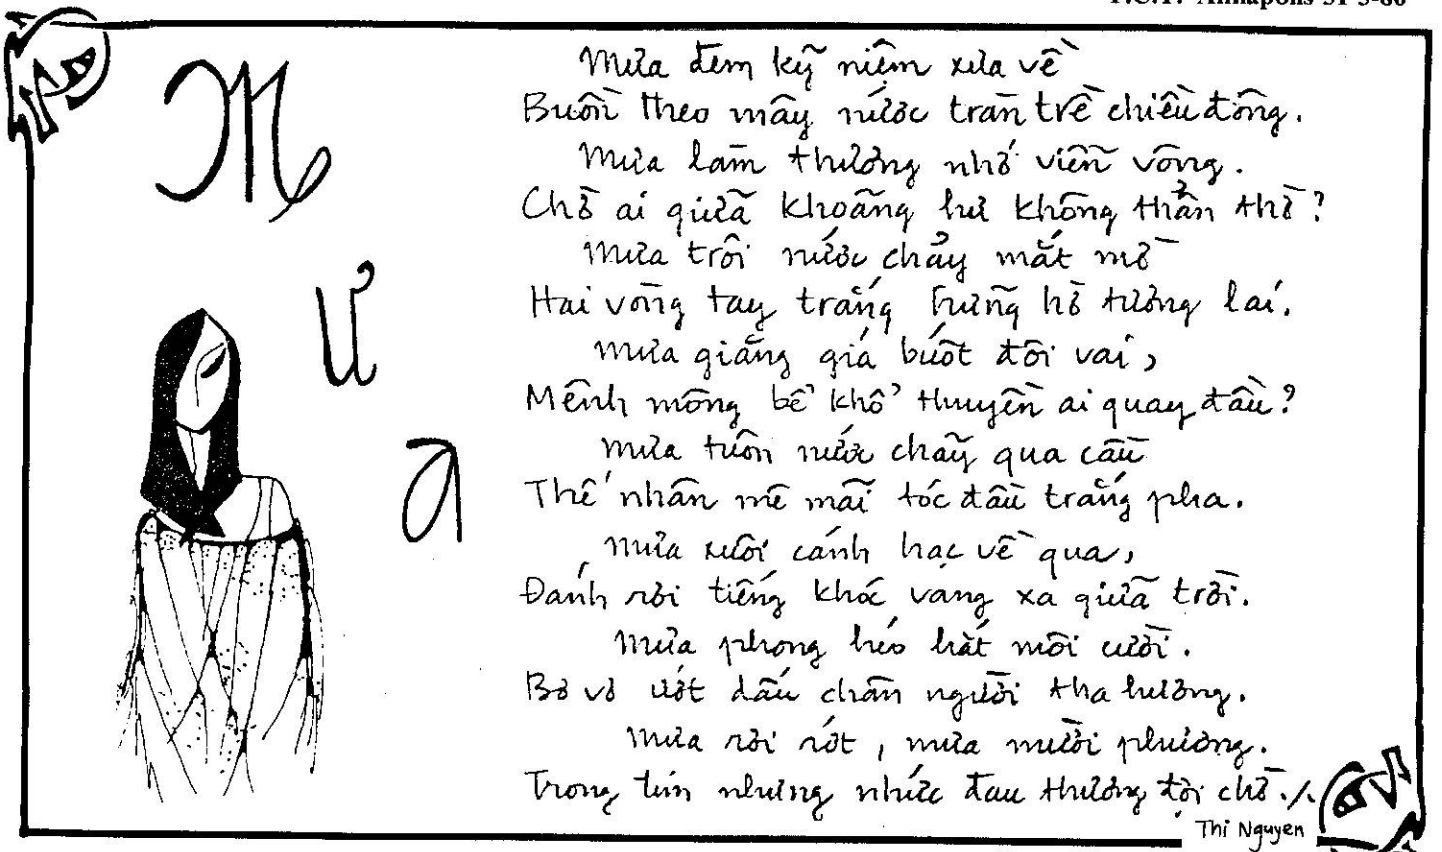 T.C.T. Annapolis 31-3-86
Mưa
Mưa đêm kỹ niệm xưa về
Buồn theo mây nước tràn trề chiều đông.
Mưa làm thương nhớ viễn vông.
Chờ ai giữa khoãng hư không thẩn thờ?
Mưa trôi nước chảy mắt mờ
Hai vòng tay trắng hững hờ tương lai.
Mưa giăng giá buốt đôi vai,
Mênh mông bể khổ thuyền ai quay đầu?
Mưa tuôn nước chãy qua cầu
Thế nhân mê mãi tóc đầu trắng pha.
Mưa xuôi cánh hạc về qua,
Đánh rơi tiếng khóc vang xa giữa trời.
Mưa phong héo hắt môi cười.
Bơ vơ ướt dấu chân người tha hương.
Mưa rơi rớt, mưa mười phương.
Trong tim nhưng nhức đau thương đợi chờ./.
Thi Nguyen